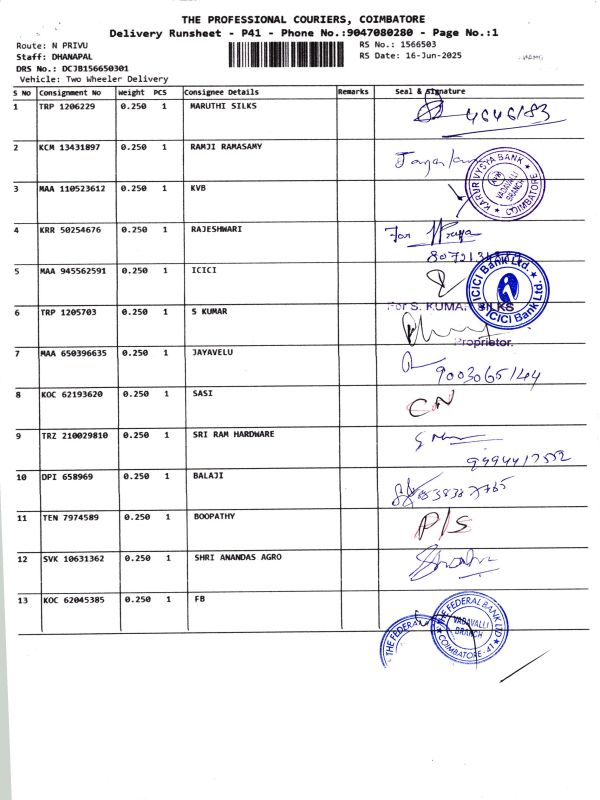 THE PROFESSIONAL COURIERS, COIMBATORE
Delivery Runsheet - P41 - Phone No.:9047080280 - Page No.:1
Route: N PRIVU
RS No.: 1566503
Staff: DHANAPAL
RS Date: 16-Jun-2025
DRS No.: DCJB156650301
Vehicle: Two Wheeler Delivery
S No Consignment No Weight PCS Consignee Details Remarks Seal & Signature
1 TRP 1206229 0.250 1 MARUTHI SILKS
2 KCM 13431897 0.250 1 RAMJI RAMASAMY
KARUR VYSYA BANK
VADAVALLI
BRANCH
COIMBATORE
3 MAA 110523612 0.250 1 KVB
4 KRR 50254676 0.250 1 RAJESHWARI For
5 MAA 945562591 0.250 1 ICICI
ICICI Bank Ltd.
ICICI Bank Ltd.
6 TRP 1205703 0.250 1 S KUMAR
For S. KUMAR SILKS
Proprietor.
7 MAA 650396635 0.250 1 JAYAVELU
8 KOC 62193620 0.250 1 SASI CN
9 TRZ 210029810 0.250 1 SRI RAM HARDWARE
10 DPI 658969 0.250 1 BALAJI
11 TEN 7974589 0.250 1 BOOPATHY P/S
12 SVK 10631362 0.250 1 SHRI ANANDAS AGRO
13 KOC 62045385 0.250 1 FB
THE FEDERAL
THE FEDERAL BANK LTD
VADAVALLI
BRANCH
COIMBATORE-41